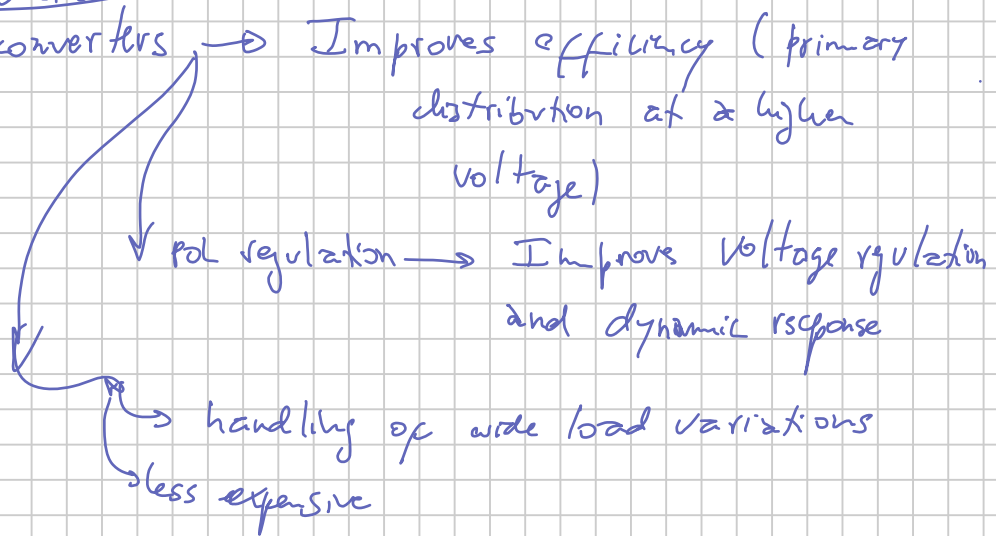 converters → Improves efficiency (primary
distribution at a higher
voltage)
POL regulation → Improves voltage regulation
and dynamic response
handling of wide load variations
less expensive